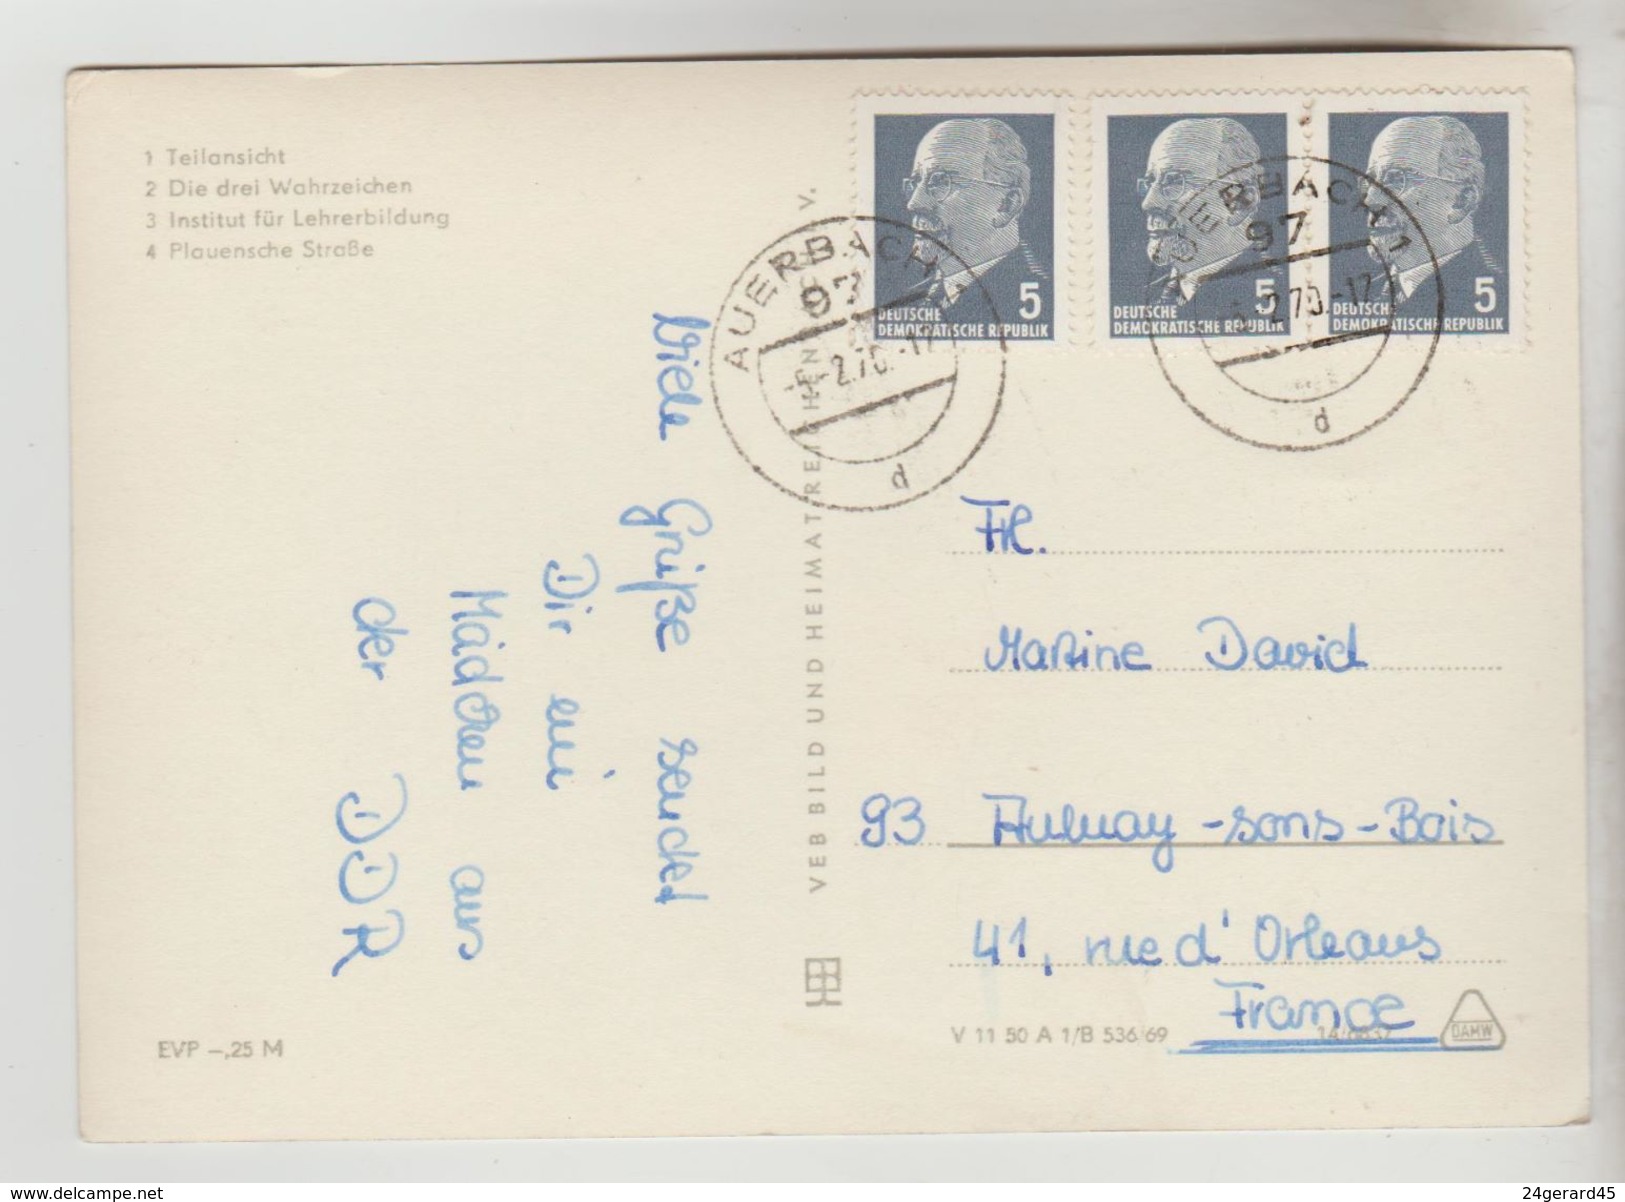 1 Teilansicht
2 Die drei Wahrzeichen
3 Institut für Lehrerbildung
4 Plauensche Straße
Viele Grüße sendet
Dir ein
Mädchen aus
der DDR
EVP –,25 M
VEB BILD UND HEIMAT REICHENBACH i. V.
5
DEUTSCHE
DEMOKRATISCHE REPUBLIK
5
DEUTSCHE
DEMOKRATISCHE REPUBLIK
5
DEUTSCHE
DEMOKRATISCHE REPUBLIK
AUERBACH 1
97
-2.70.-17
d
AUERBACH 1
97
-2.70.-17
d
Frl.
Martine David
93 Aulnay-sons-Bois
41, rue d' Orleans
France
V 11 50 A 1/B 536/69
DAMW
24gerard45
www.delcampe.net